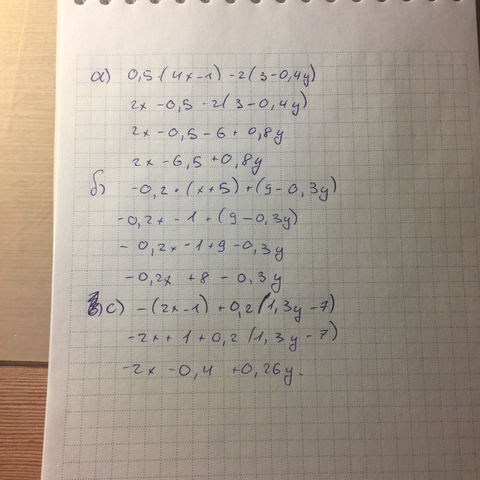 а) 0,5·(4x-1) -2(3-0,4y)
2x -0,5 -2(3-0,4y)
2x -0,5 -6 + 0,8y
2x -6,5 +0,8y
б) -0,2·(x+5)+(9-0,3y)
-0,2x -1 +(9-0,3y)
- 0,2x -1+9 -0,3y
-0,2x +8 - 0,3y
с) -(2x-1) +0,2(1,3y-7)
-2x+ 1 +0,2(1,3y-7)
-2x -0,4 +0,26y.